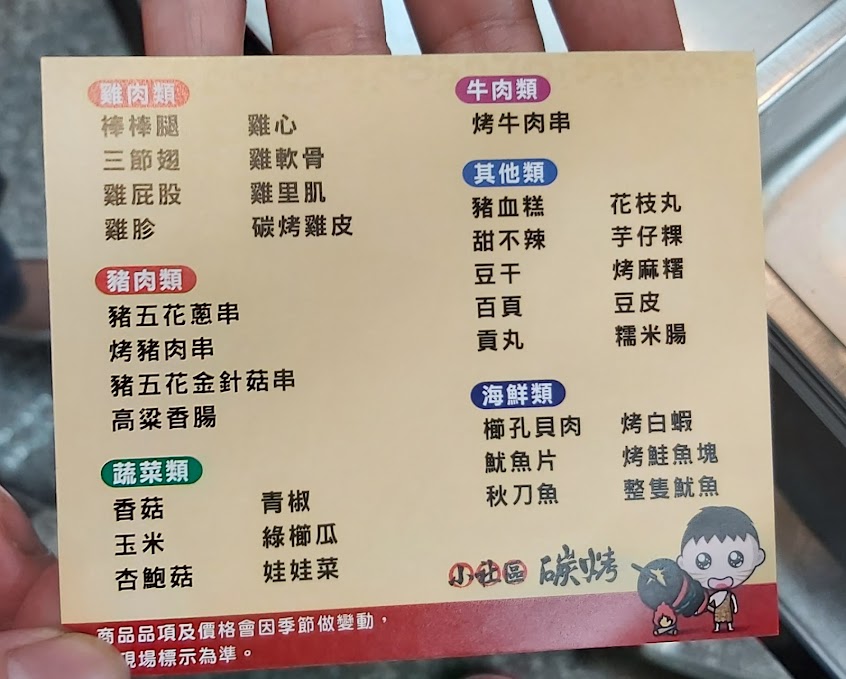 雞肉類
棒棒腿 雞心
三節翅 雞軟骨
雞屁股 雞里肌
雞胗 碳烤雞皮
豬肉類
豬五花蔥串
烤豬肉串
豬五花金針菇串
高粱香腸
蔬菜類
香菇 青椒
玉米 綠櫛瓜
杏鮑菇 娃娃菜
牛肉類
烤牛肉串
其他類
豬血糕 花枝丸
甜不辣 芋仔粿
豆干 烤麻糬
百頁 豆皮
貢丸 糯米腸
海鮮類
櫛孔貝肉 烤白蝦
魷魚片 烤鮭魚塊
秋刀魚 整隻魷魚
小社區 碳烤
商品品項及價格會因季節做變動，
現場標示為準。